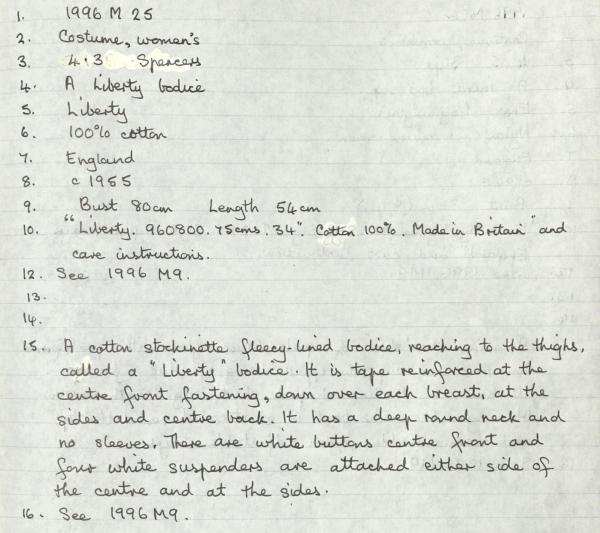 1. 1996 M 25
2. Costume, women's
3. 4.3 Spencers
4. A Liberty bodice
5. Liberty
6. 100% cotton
7. England
8. c 1955
9. Bust 80cm Length 54cm
10. "Liberty. 960800. 75cms. 34". Cotton 100%. Made in Britain" and
care instructions.
12. See 1996 M9.
13.
14.
15. A cotton stockinette fleecy-lined bodice, reaching to the thighs,
called a "Liberty" bodice. It is tape reinforced at the
centre front fastening, down over each breast, at the
sides and centre back. It has a deep round neck and
no sleeves. There are white buttons centre front and
four white suspenders are attached either side of
the centre and at the sides.
16. See 1996 M9.